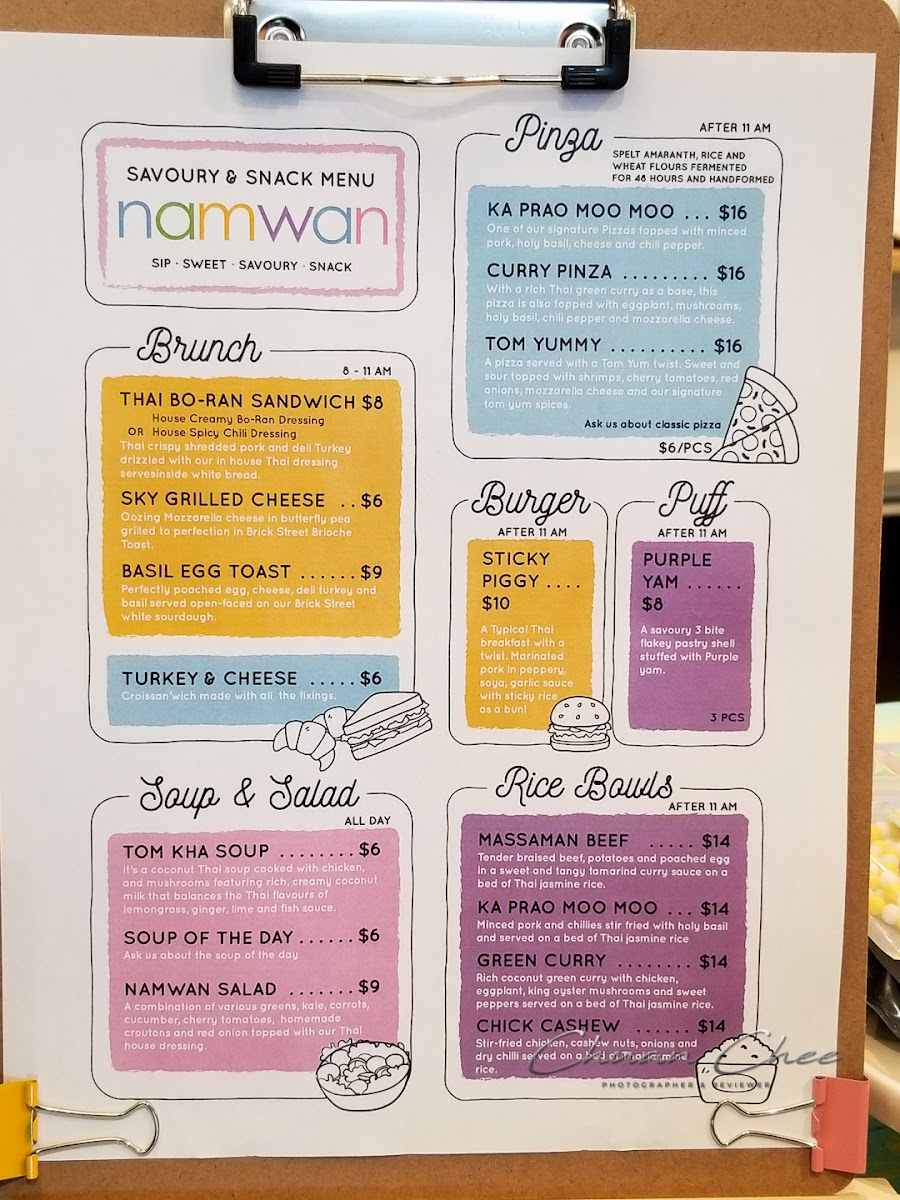 SAVOURY & SNACK MENU
namwan
SIP · SWEET · SAVOURY · SNACK
Brunch
8 - 11 AM
THAI BO-RAN SANDWICH $8
House Creamy Bo-Ran Dressing
OR House Spicy Chili Dressing
Thai crispy shredded pork and deli Turkey
drizzled with our in house Thai dressing
servesinside white bread.
SKY GRILLED CHEESE .. $6
Oozing Mozzarella cheese in butterfly pea
grilled to perfection in Brick Street Brioche
Toast.
BASIL EGG TOAST ...... $9
Perfectly poached egg, cheese, deli turkey and
basil served open-faced on our Brick Street
white sourdough.
TURKEY & CHEESE ..... $6
Croissan'wich made with all the fixings.
Soup & Salad
ALL DAY
TOM KHA SOUP ........ $6
It's a coconut Thai soup cooked with chicken,
and mushrooms featuring rich, creamy coconut
milk that balances the Thai flavours of
lemongrass, ginger, lime and fish sauce.
SOUP OF THE DAY ...... $6
Ask us about the soup of the day
NAMWAN SALAD ....... $9
A combination of various greens, kale, carrots,
cucumber, cherry tomatoes, homemade
croutons and red onion topped with our Thai
house dressing.
Pinza
AFTER 11 AM
SPELT AMARANTH, RICE AND
WHEAT FLOURS FERMENTED
FOR 48 HOURS AND HANDFORMED
KA PRAO MOO MOO ... $16
One of our signature Pizzas topped with minced
pork, holy basil, cheese and chili pepper.
CURRY PINZA ......... $16
With a rich Thai green curry as a base, this
pizza is also topped with eggplant, mushrooms,
holy basil, chili pepper and mozzarella cheese.
TOM YUMMY .......... $16
A pizza served with a Tom Yum twist. Sweet and
sour topped with shrimps, cherry tomatoes, red
onions, mozzarella cheese and our signature
tom yum spices.
Ask us about classic pizza
$6/PCS
Burger
AFTER 11 AM
STICKY
PIGGY ....
$10
A Typical Thai
breakfast with a
twist. Marinated
pork in peppery,
soya, garlic sauce
with sticky rice
as a bun!
Puff
AFTER 11 AM
PURPLE
YAM ......
$8
A savoury 3 bite
flakey pastry shell
stuffed with Purple
yam.
3 PCS
Rice Bowls
AFTER 11 AM
MASSAMAN BEEF ..... $14
Tender braised beef, potatoes and poached egg
in a sweet and tangy tamarind curry sauce on a
bed of Thai jasmine rice.
KA PRAO MOO MOO ... $14
Minced pork and chillies stir fried with holy basil
and served on a bed of Thai jasmine rice
GREEN CURRY ........ $14
Rich coconut green curry with chicken,
eggplant, king oyster mushrooms and sweet
peppers served on a bed of Thai jasmine rice.
CHICK CASHEW ...... $14
Stir-fried chicken, cashew nuts, onions and
dry chilli served on a bed of Thai jasmine
rice.
Chee
PHOTOGRAPHER & REVIEWER